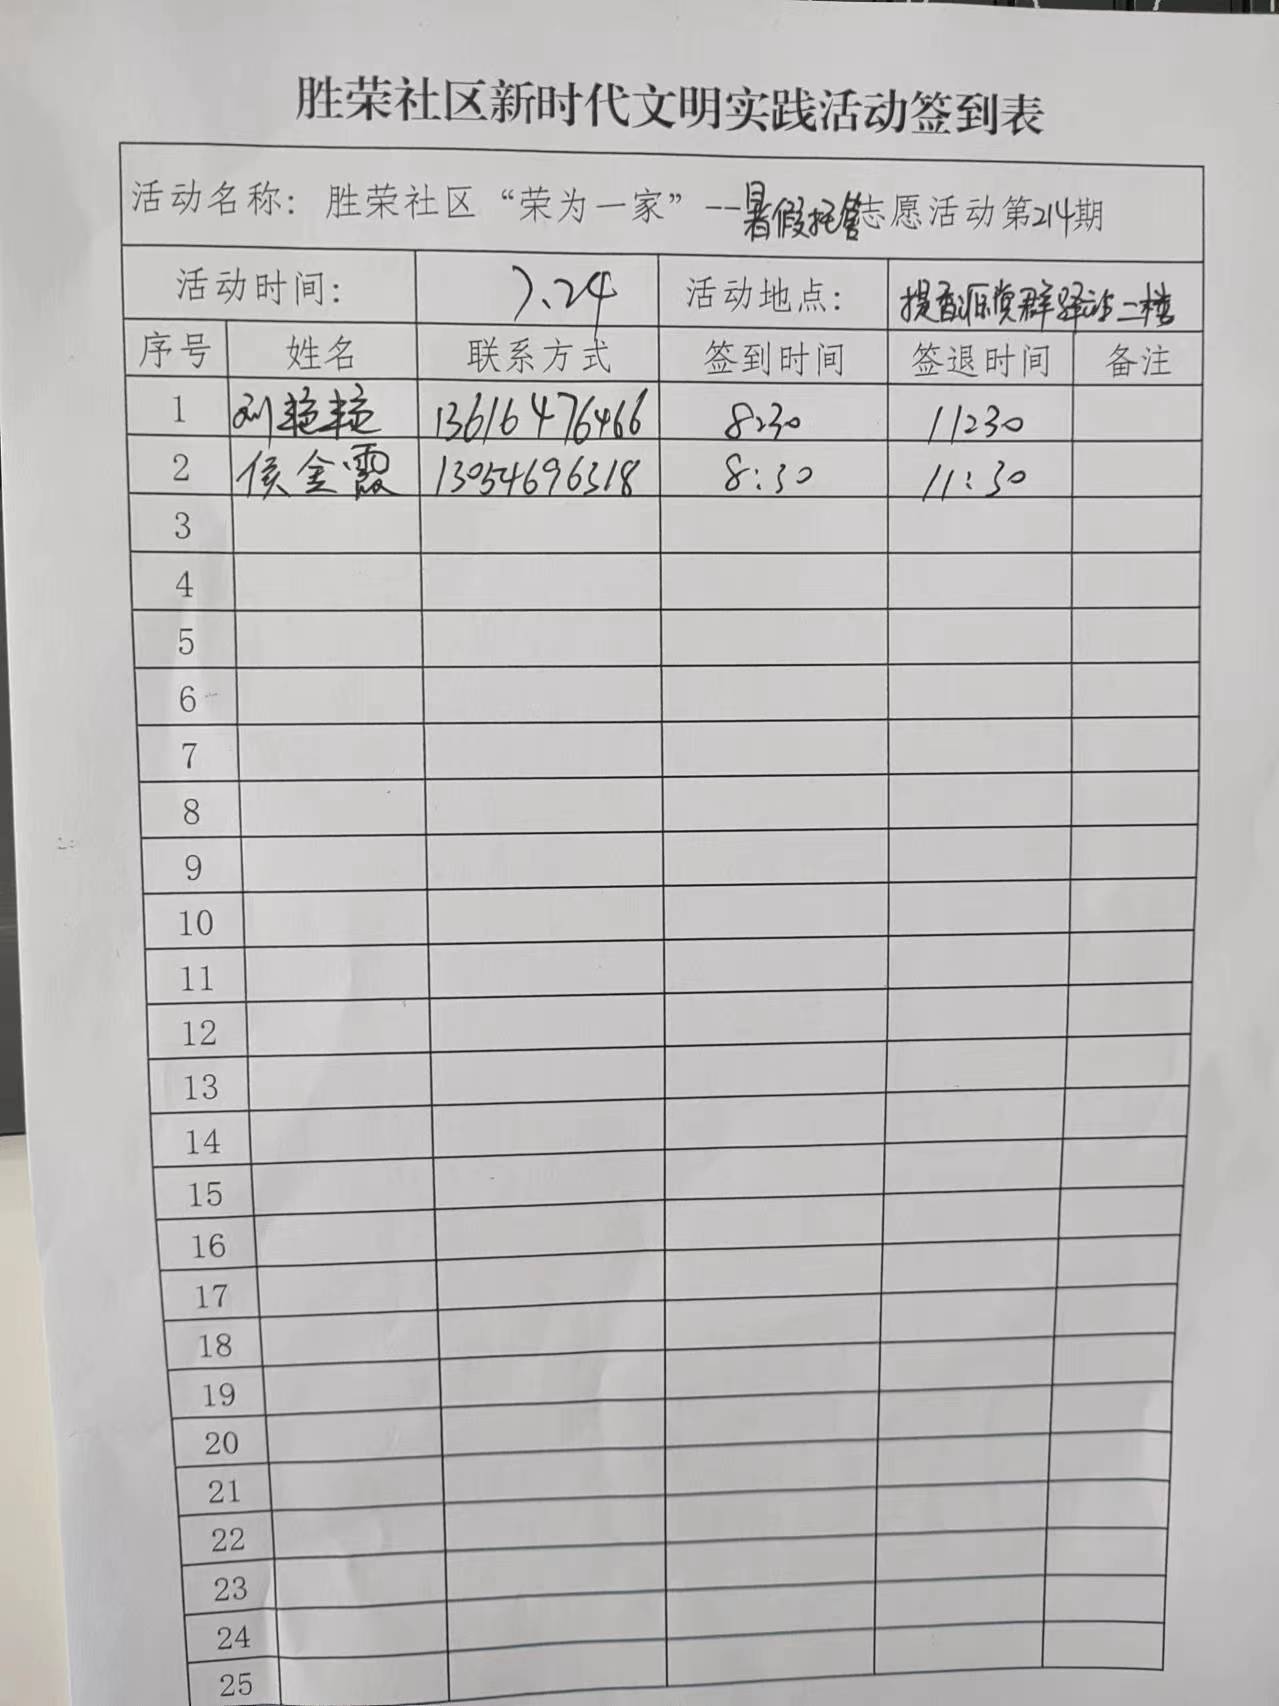 胜荣社区新时代文明实践活动签到表
活动名称：胜荣社区“荣为一家”--暑假托管志愿活动第214期
活动时间： 7.24 活动地点： 提香派党群驿站二楼
序号 姓名 联系方式 签到时间 签退时间 备注
1 刘艳艳 13616476466 8:30 11:30
2 侯金霞 13054696318 8:30 11:30
3
4
5
6
7
8
9
10
11
12
13
14
15
16
17
18
19
20
21
22
23
24
25